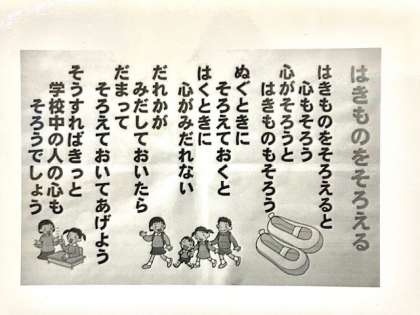 はきものをそろえる
はきものをそろえると
心もそろう
心がそろうと
はきものもそろう
ぬぐときに
そろえておくと
はくときに
心がみだれない
だれかが
みだしておいたら
だまって
そろえておいてあげよう
そうすればきっと
学校中の人の心も
そろうでしょう